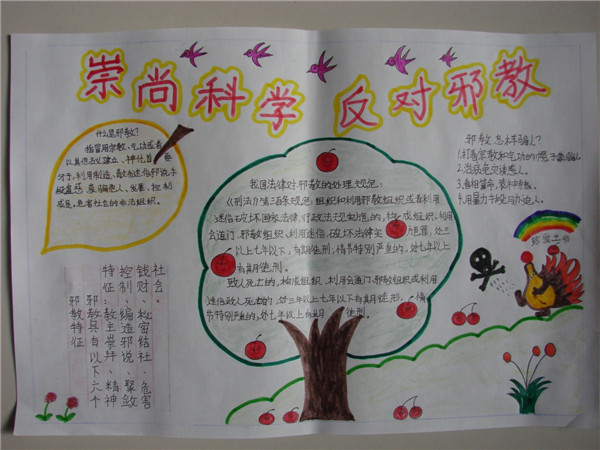 崇尚科学 反对邪教
什么是邪教?
指冒用宗教、气功或者
以其他名义建立、神化首要
分子,利用制造、散布迷信邪说手
段蛊惑、蒙骗他人,发展、控制
成员,危害社会的非法组织。
我国法律对邪教的处理规范:
《刑法》第三百条规定:组织和利用邪教组织或者利用
迷信破坏国家法律、行政法规实施的,构成组织、利用
会道门、邪教组织、利用迷信破坏法律实施罪,处三
年以上七年以下有期徒刑;情节特别严重的,处七年以上
有期徒刑。
致人死亡的,构成组织、利用会道门、邪教组织或利用
迷信致人死亡的,处三年以上七年以下有期徒刑。情
节特别严重的,处七年以上有期徒刑。
邪教怎样骗人?
1.打着宗教和气功的幌子蒙骗人
2.治病免灾诱惑人
4.用暴力手段威胁人。
珍爱生命
邪教特征
邪教具有以下六个
特征:教主崇拜、精神
控制、编造邪说、聚敛
钱财、秘密结社、危害
社会。